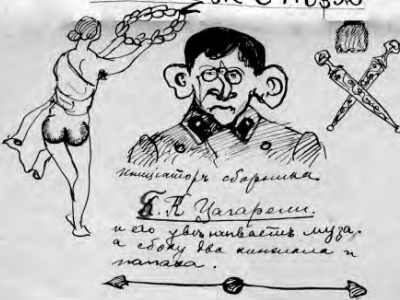 иниціаторъ сборника
Б. К Цагарели.
и его увѣнчиваетъ муза.
а сбоку два кинжала и
папаха.